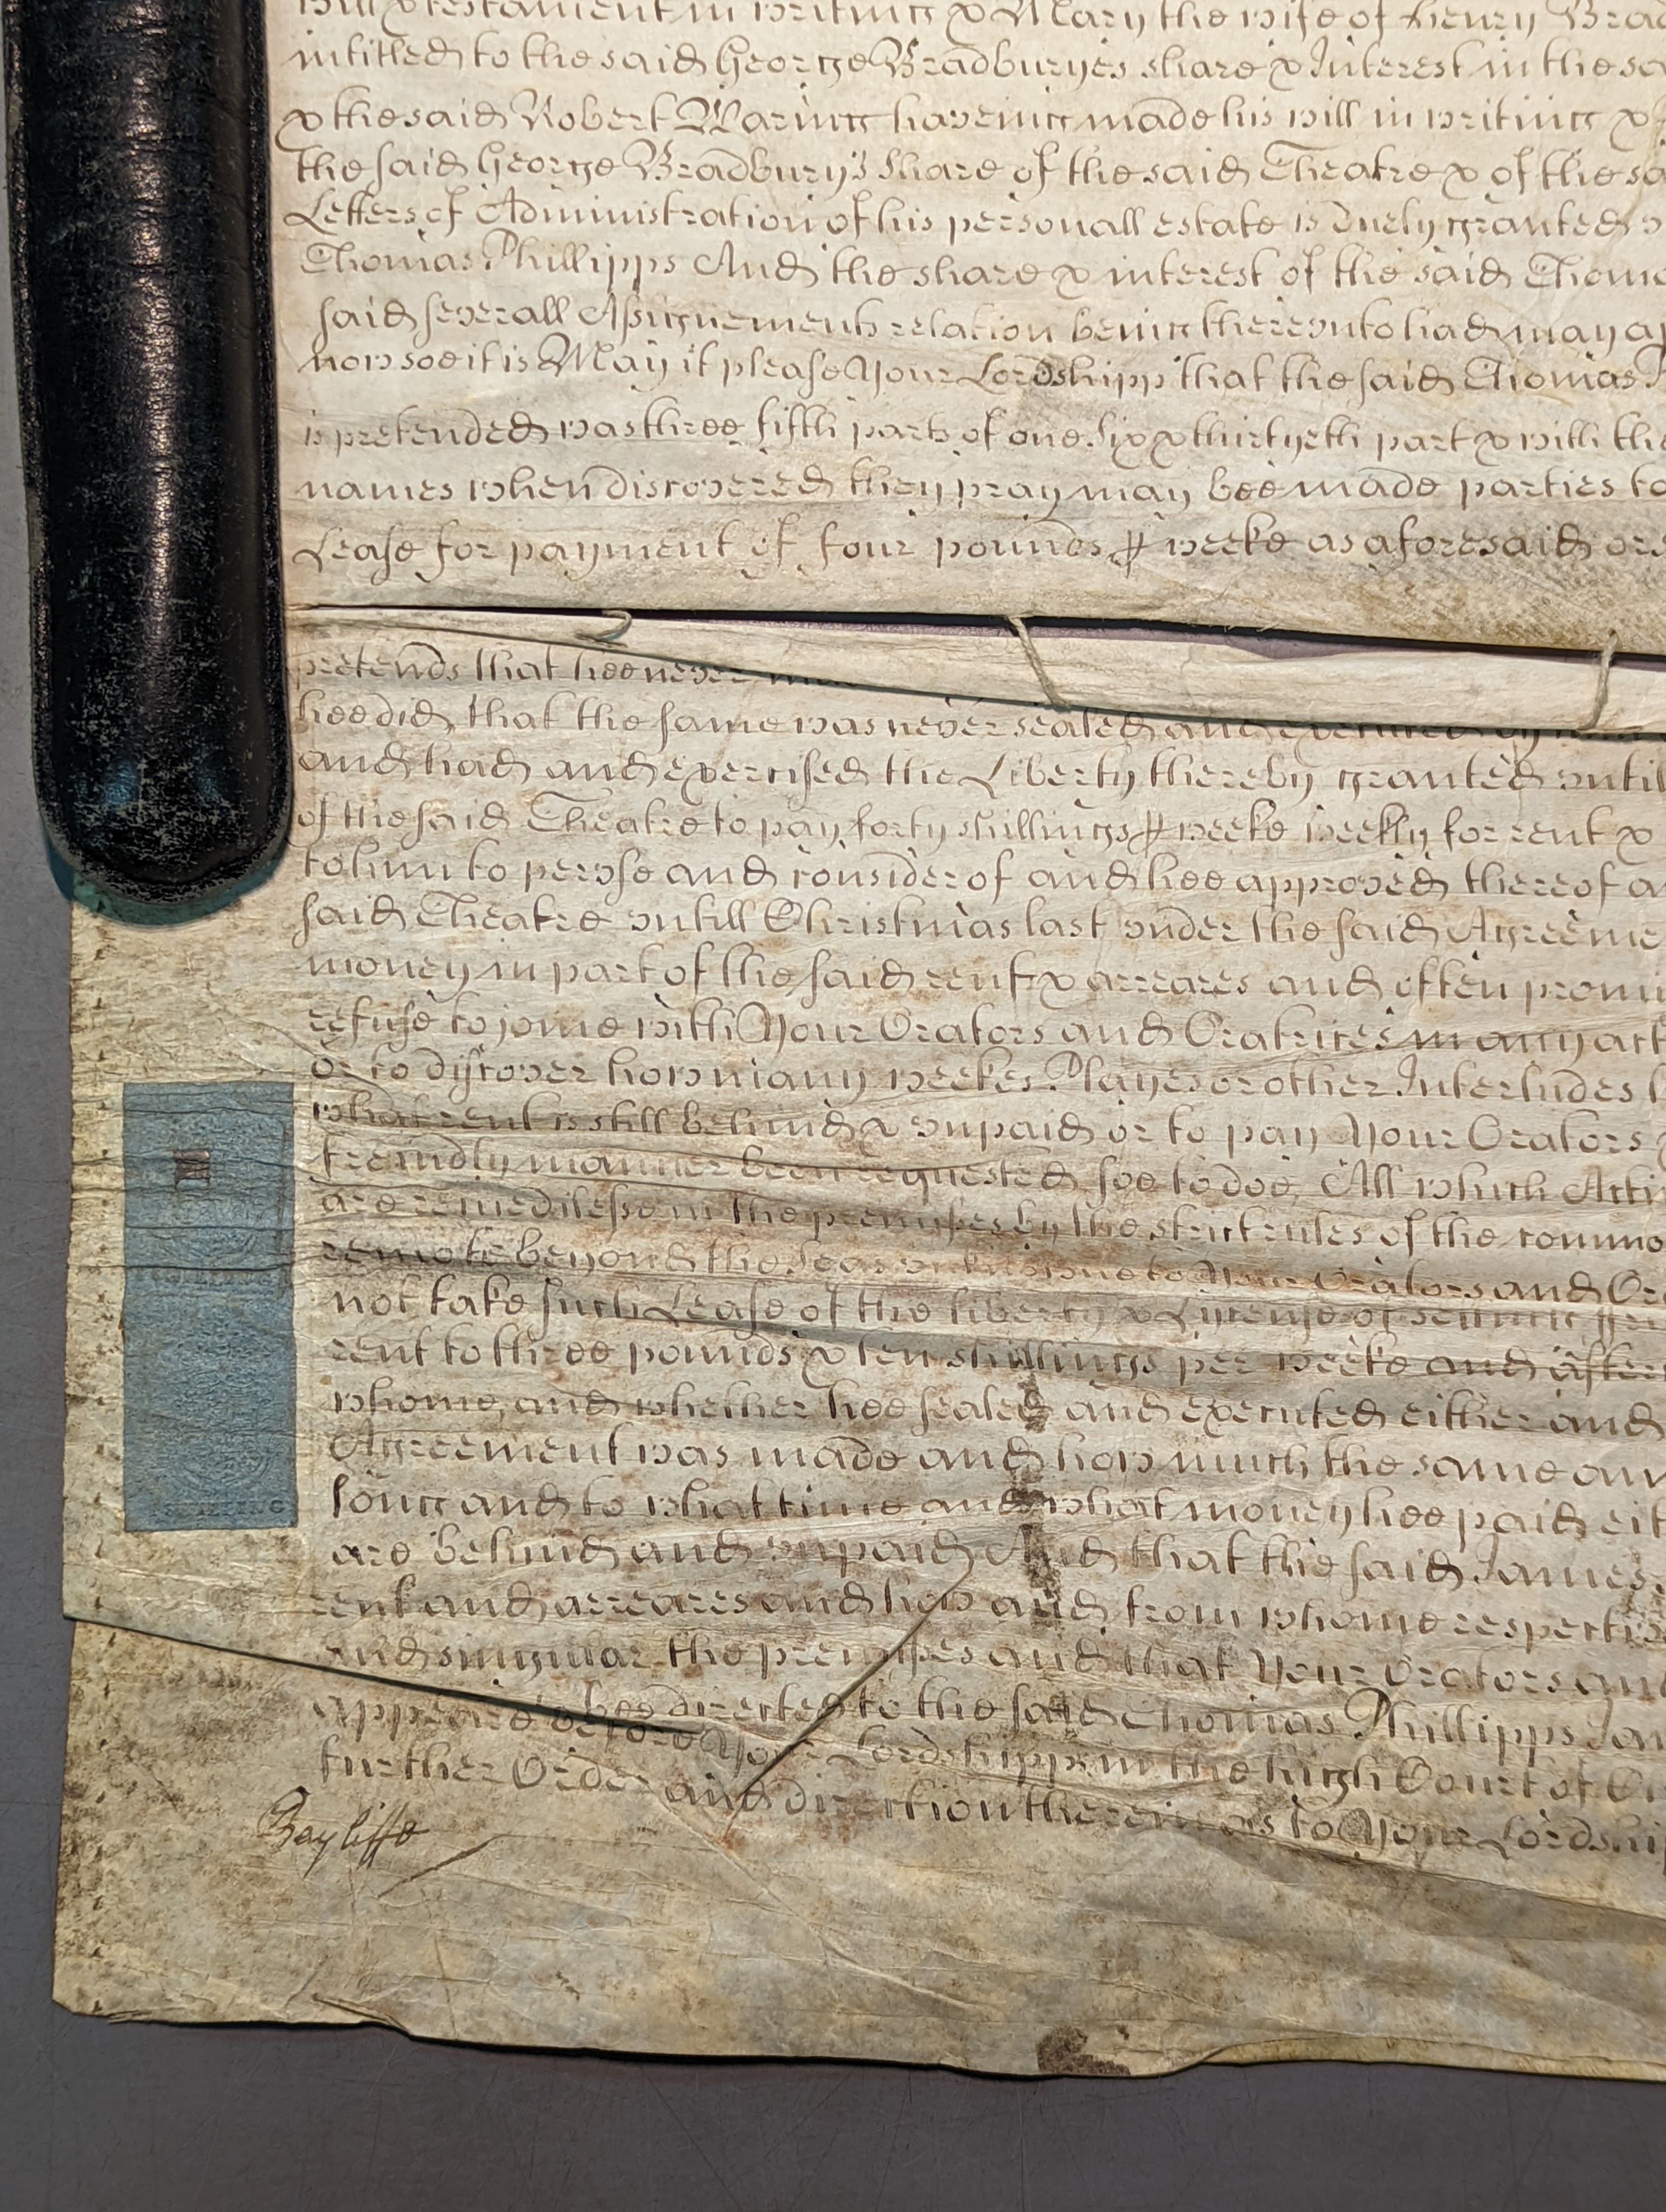 will & testament in writing & Mary the wife of Henry Brad
intitled to the said George Bradburyes share & Interest in the sa
& the said Robert Waring haveing made his will in writing &
the said George Bradbury's share of the said Theatre & of the sa
Letters of Administration of his personall estate is duely granted
Thomas Phillipps And the share & interest of the said Thoma
said severall Assignements relation being thereunto had may ap
now soe it is May it please Your Lordshipp that the said Thomas
is pretended was three fifth parts of one six & thirtyeth part & with the
names when discovered they pray may bee made parties to
Lease for payment of four pounds ꝑ weeke as aforesaid or
pretends that hee never
hee did that the same was never sealed and executed by
and had and exercised the Liberty thereby granted untill
of the said Theatre to pay forty shillings ꝑ weeke weekly for rent &
to him to peruse and consider of and hee approved thereof a
said Theatre untill Christmas last under the said Agreeme
money in part of the said rent & arreares and often promi
refuse to joine with Your Orators and Oratrices in any act
or to discover how many weekes Playes or other Interludes
what rent is still behind & unpaid or to pay Your Orators
freindly manner been requested soe to doe All which Acti
are remedilesse in the premisses by the strict rules of the commo
remote beyond the Seas unknowne to Your Orators and Or
not take such Lease of the liberty & Lycense of
rent to three pounds & ten shillings per weeke and after
whome and whether hee sealed and executed either and
Agreement was made and how much the same am
long and to what time and what money hee paid eit
are behind and unpaid And that the said James
rent and arreares and how and from whome respectiv
and singular the premisses and that Your Orators and
bee directed to the said Thomas Phillipps Jam
appeare before Your Lordshipp in the high Court of Ch
further Order and direction therein as to Your Lordship
Bayliffe
III
SHILLING